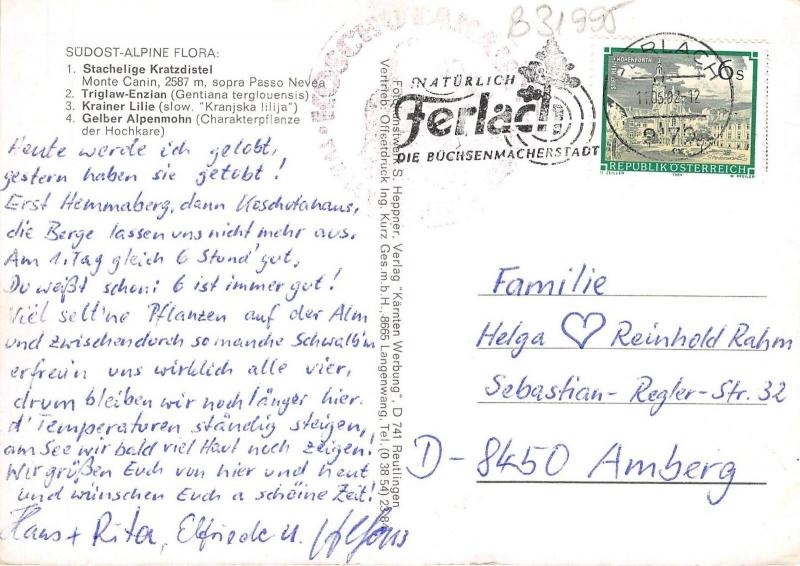 B31995
SÜDOST-ALPINE FLORA:
1. Stachelige Kratzdistel
Monte Canin, 2587 m, sopra Passo Nevea
2. Triglaw-Enzian (Gentiana terglouensis)
3. Krainer Lilie (slow. "Kranjska lilija")
4. Gelber Alpenmohn (Charakterpflanze
der Hochkare)
Heute werde ich gelobt,
gestern haben sie getobt!
Erst Hemmaberg, dann Koschutahaus,
die Berge lassen uns nicht mehr aus.
Am 1. Tag gleich 6 Stund' gut,
Du weißt schon: 6 ist immer gut!
Viel selt'ne Pflanzen auf der Alm
und zwischendurch so manche Schwalb'm
erfreu'n uns wirklich alle vier,
drum bleiben wir noch länger hier.
d' Temperaturen ständig steigen,
am See wir bald viel Haut noch zeigen!
Wir grüßen Euch von hier und heut
und wünschen Euch a schöine Zeit!
Hans + Rita, Elfriede u. Alfons
Fotos: S. Heppner, Verlag "Kärnten Werbung", D 741 Reutlingen
Vertrieb: Offsetdruck Ing. Kurz Ges.m.b.H., 8665 Langenwang, Tel. (0 38 54)
NATÜRLICH
Ferlach
DIE BÜCHSENMACHERSTADT
FERLACH
11.05.92-12
9170
6 S
REPUBLIK ÖSTERREICH
Familie
Helga ♡ Reinhold Rahm
Sebastian-Regler-Str. 32
D-8450 Amberg